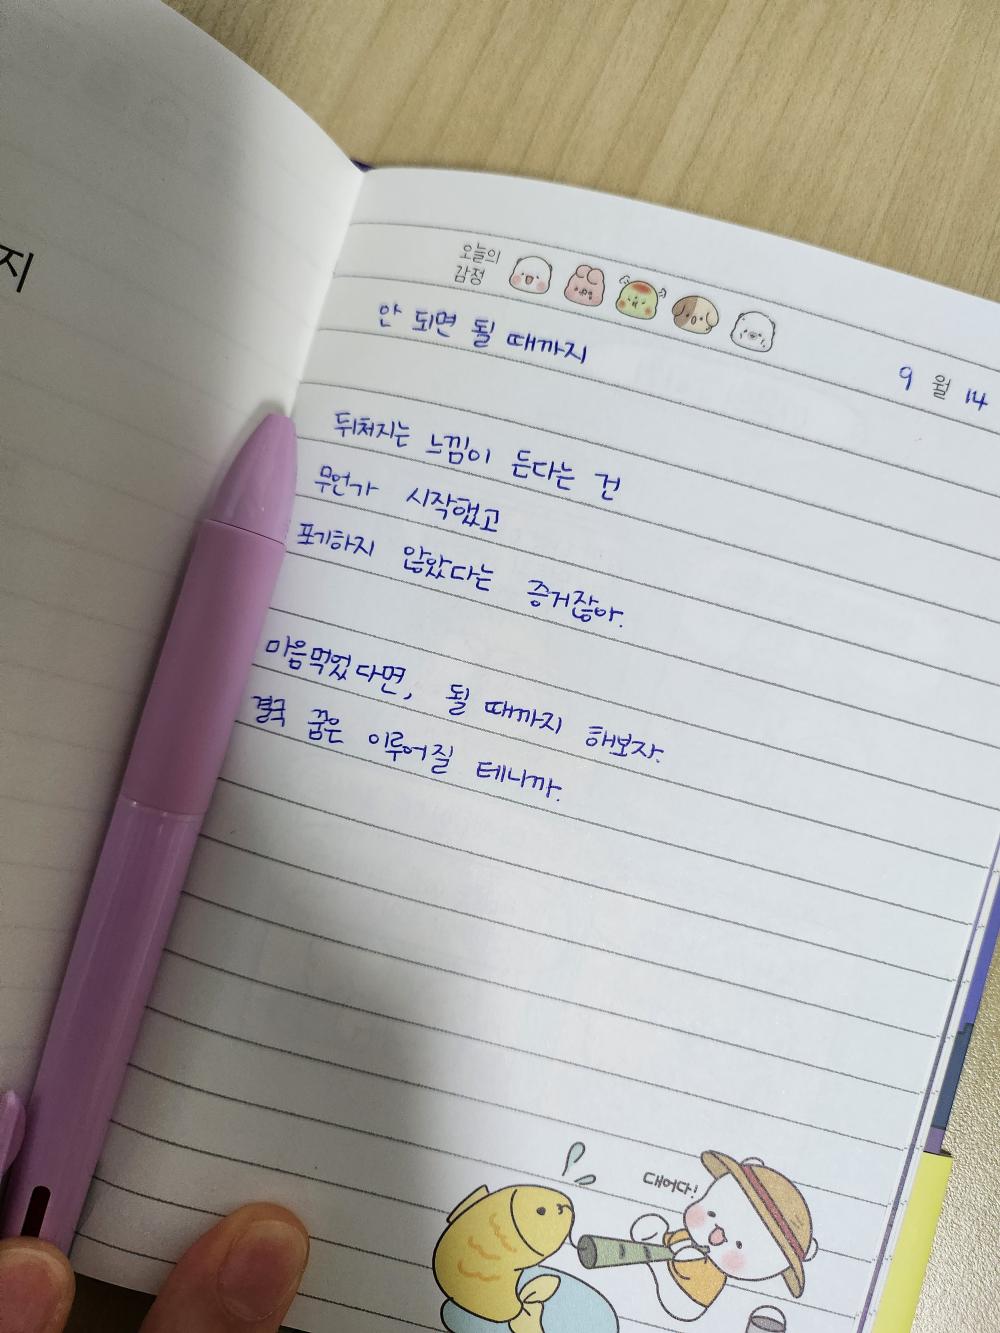 지
오늘의
감정
안 되면 될 때까지
9 월 14
뒤처지는 느낌이 든다는 건
무언가 시작했고
포기하지 않았다는 증거잖아.
마음먹었다면, 될 때까지 해보자.
결국 꿈은 이루어질 테니까.
대어다!